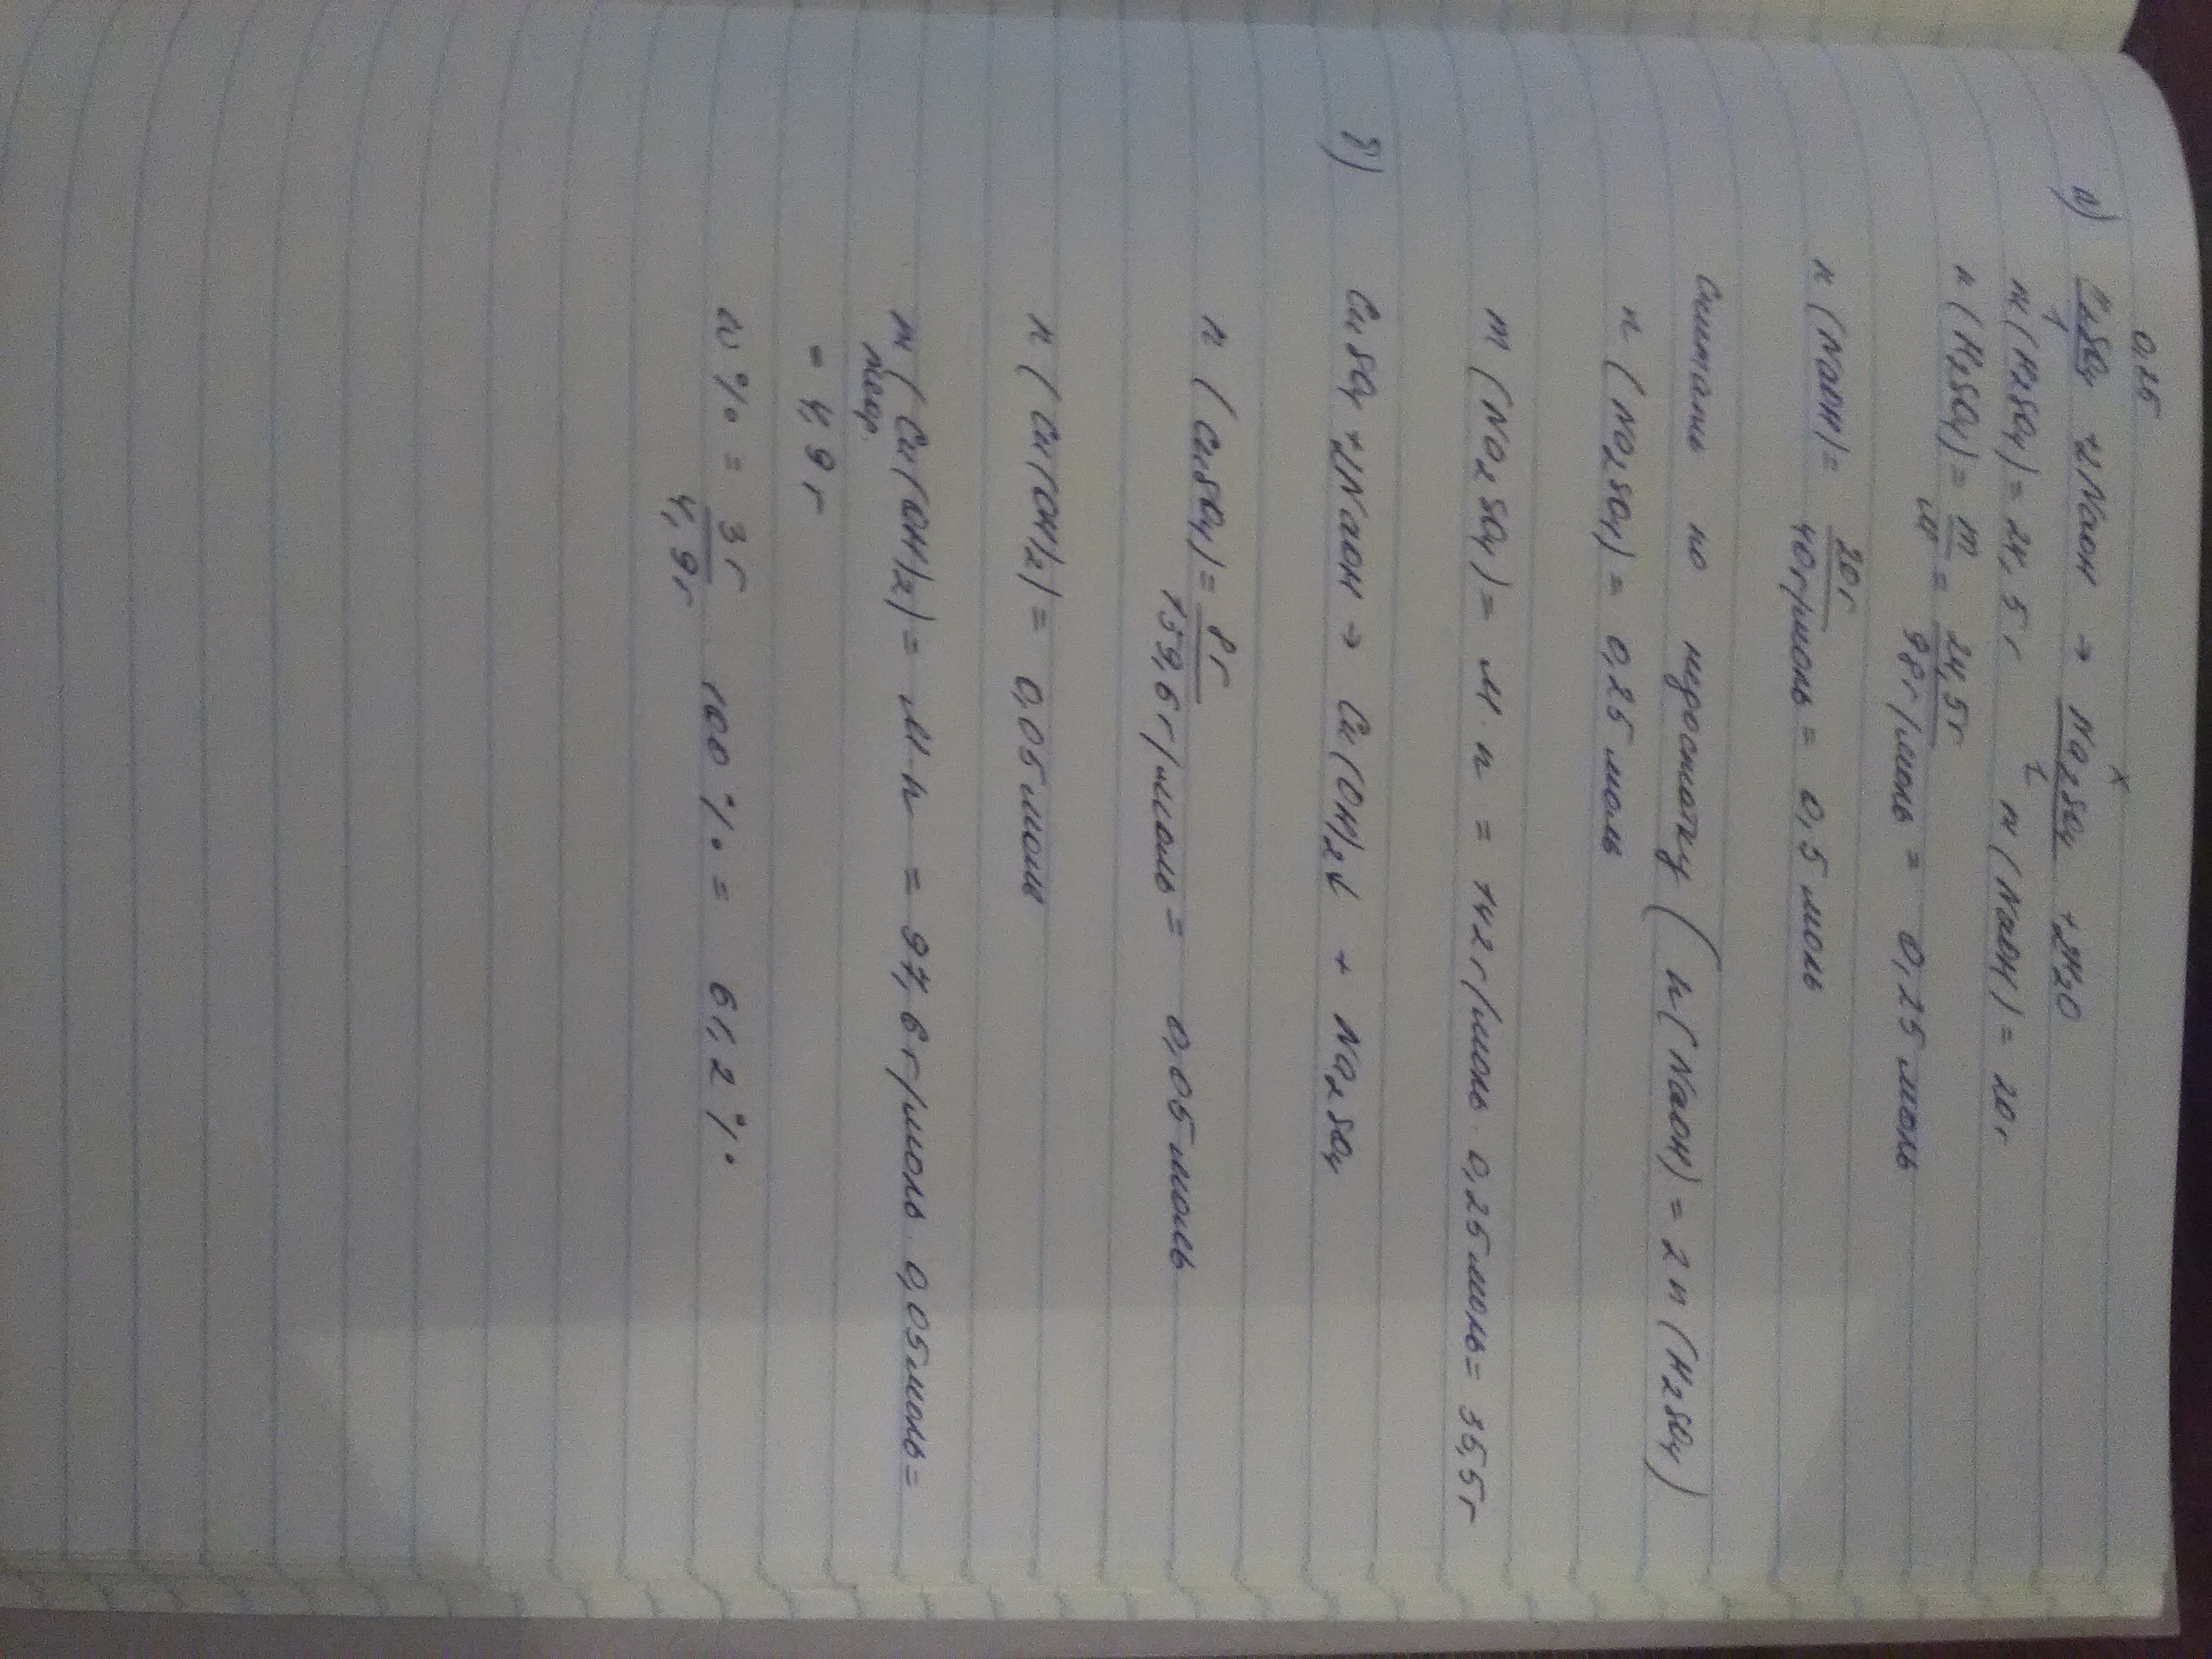 0,25 x
2) CuSO4 + 2NaOH → Na2SO4 + 2H2O
1 1
m(H2SO4) = 24,5 г m(NaOH) = 20 г
n(H2SO4) = m/M = 24,5 г/98 г/моль = 0,25 моль
n(NaOH) = 20 г/40 г/моль = 0,5 моль
Считать по недостатку (n(NaOH) = 2n(H2SO4)
n(Na2SO4) = 0,25 моль
m(Na2SO4) = M · n = 142 г/моль · 0,25 моль = 35,5 г
3) CuSO4 + 2NaOH → Cu(OH)2↓ + Na2SO4
n(CuSO4) = 8 г/159,6 г/моль = 0,05 моль
n(Cu(OH)2) = 0,05 моль
m(Cu(OH)2) = M·n = 97,6 г/моль · 0,05 моль =
теор.
= 4,9 г
w% = 3 г/4,9 г 100% = 61,2%